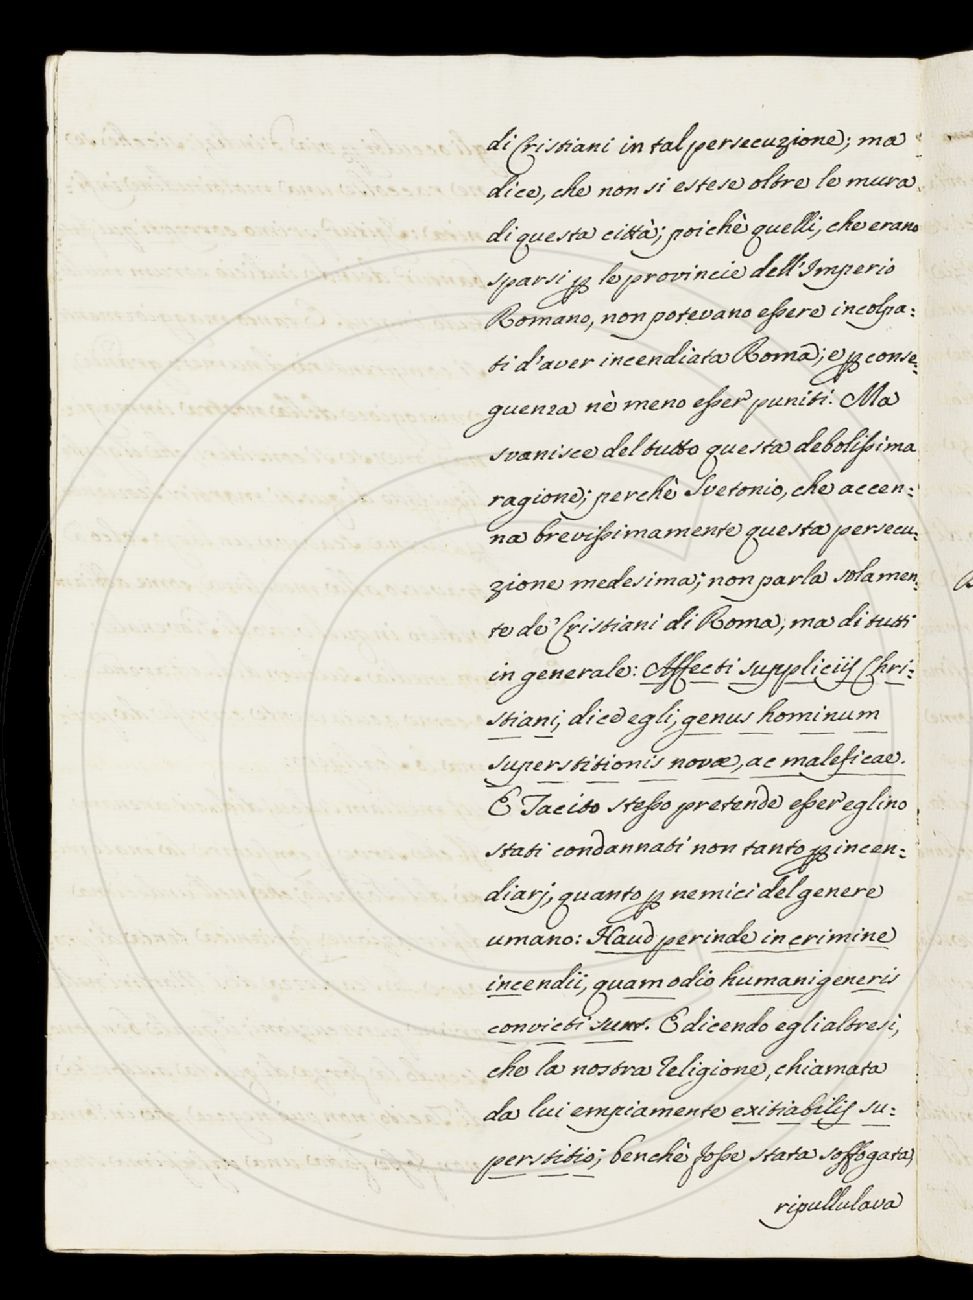 di Cristiani in tal persecuzione; ma
dice, che non si estese oltre le mura
di questa città; poichè quelli, che erano
sparsi p le provincie dell'Imperio
Romano, non potevano essere incolpa:
ti d'aver incendiata Roma; e p conse:
guenza nè meno esser puniti. Ma
svanisce del tutto questa debolissima
ragione; perchè Svetonio, che accen:
na brevissimamente questa persecu:
zione medesima; non parla solamen:
te de' Cristiani di Roma, ma di tutti
in generale: Affecti suppliciis Chri:
stiani, dic'egli, genus hominum
superstitionis novæ, ac maleficae.
E Tacito stesso pretende esser eglino
stati condannati non tanto p incen:
diarj, quanto p nemici del genere
umano: Haud perinde in crimine
incendii, quam odio humani generis
convicti sunt. E dicendo egli altresì,
che la nostra Religione, chiamata
da lui empiamente exitiabilis su:
perstitio; benchè fosse stata soffogata,
ripullulava